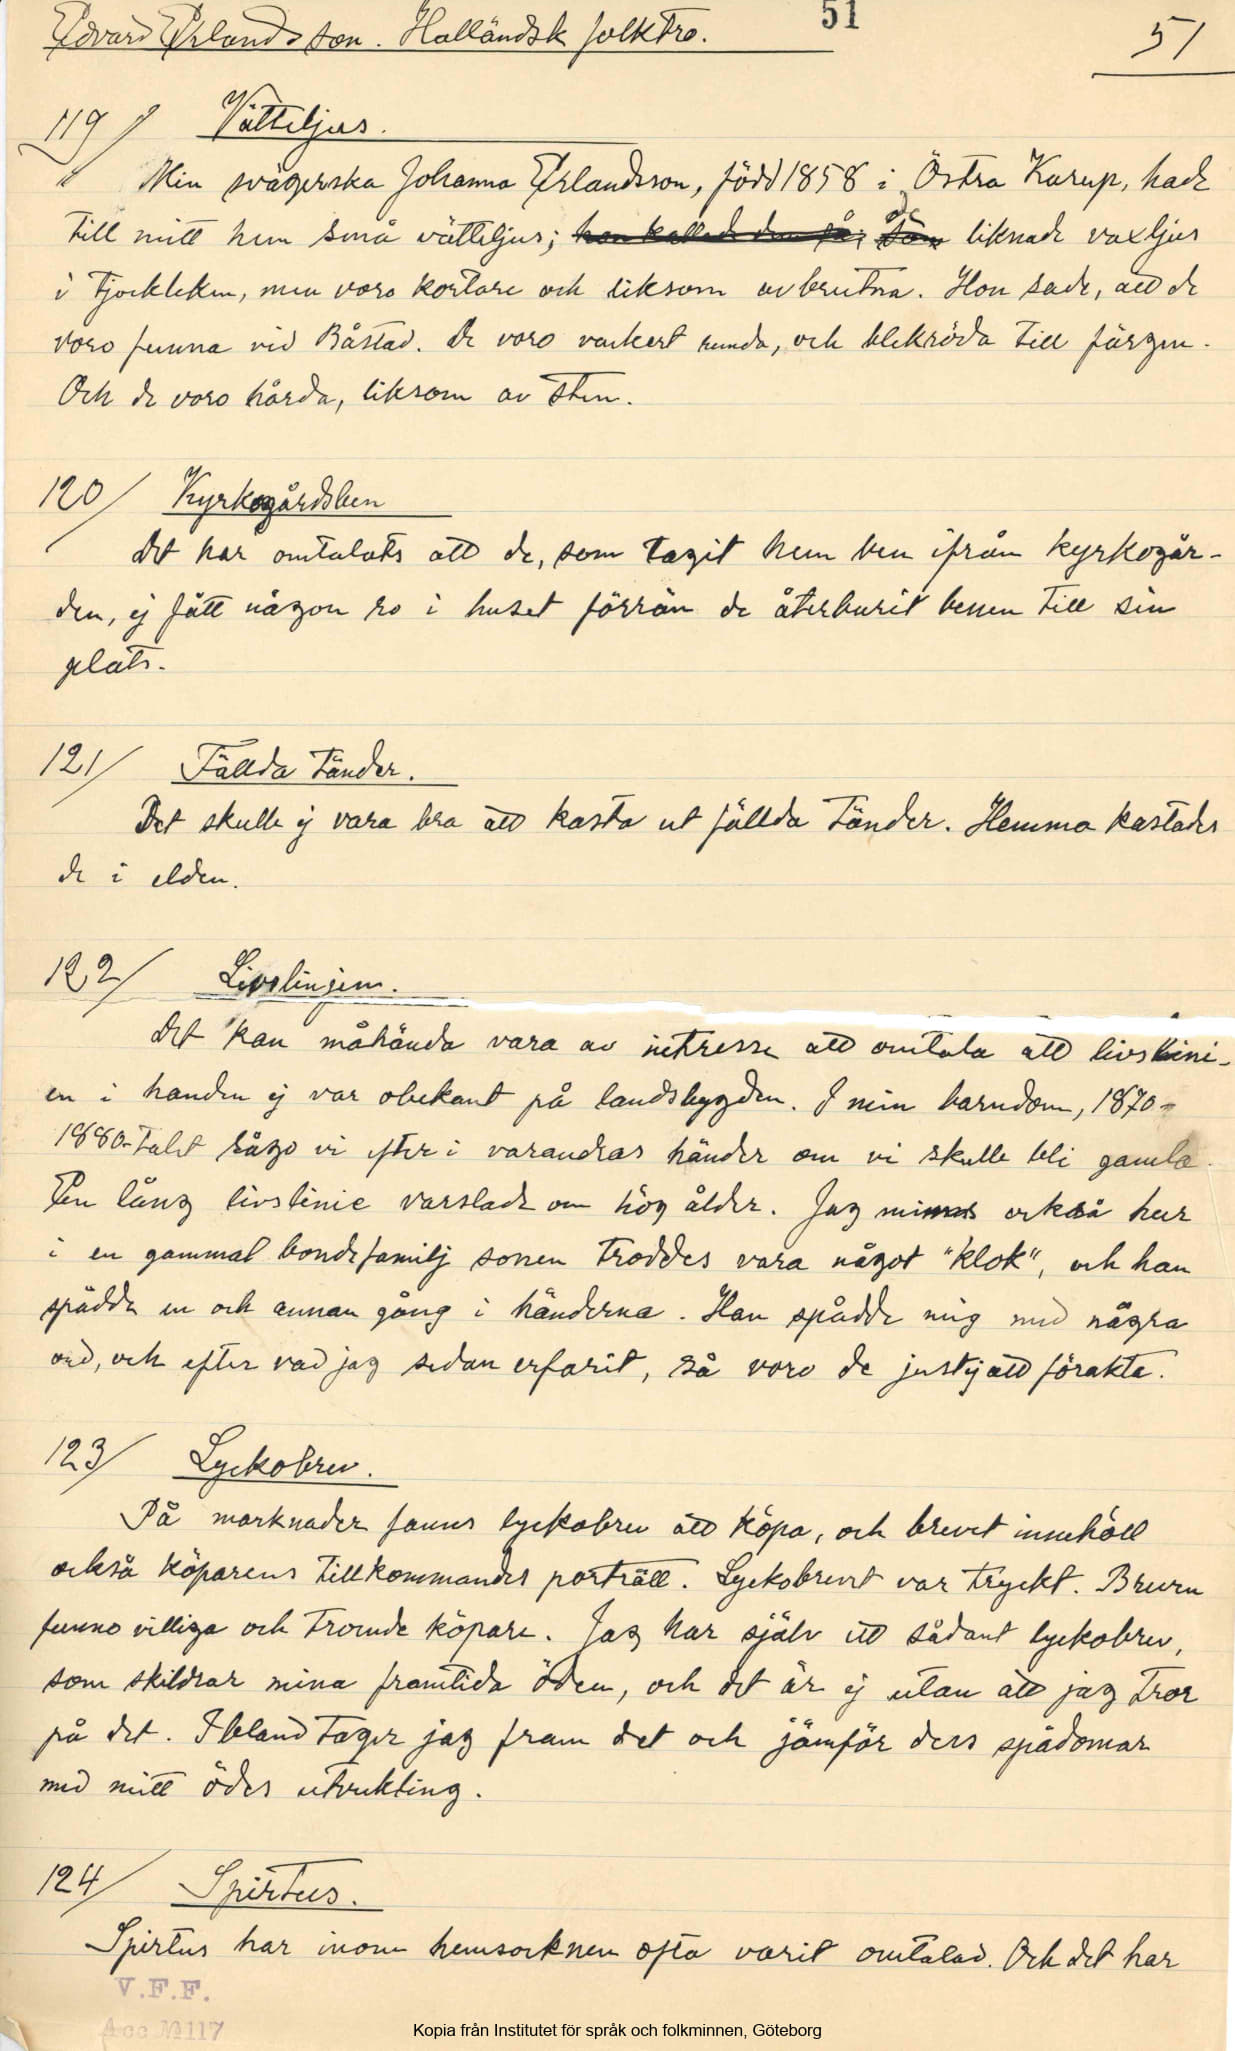 Edvard Erlandsson. Halländsk folktro.
51
51
119/ Vätteljus.
Min svägerska Johanna Erlandsson, född 1858 i Östra Karup, hade
till mitt hem små vätteljus; hon kallade dem så; som de liknade vaxljus
i tjockleken, men voro kortare och liksom avbrutna. Hon sade, att de
voro funna vid Båstad. De voro vackert runda, och blekröda till färgen.
Och de voro hårda, liksom av sten.
120/ Kyrkogårdsben
Det har omtalats att de, som tagit hem ben ifrån kyrkogår-
den, ej fått någon ro i huset förrän de återburit benen till sin
plats.
121/ Fällda tänder.
Det skulle ej vara bra att kasta ut fällda tänder. Hemma kastades
de i elden.
122/ Livslinjen.
Det kan måhända vara av intresse att omtala att livslini-
en i handen ej var obekant på landsbygden. I min barndom, 1870-
1880-talet sågo vi efter i varandras händer om vi skulle bli gamla.
En lång livslinie varslade om hög ålder. Jag minnes också hur
i en gammal bondefamilj sonen troddes vara något "klok", och han
spådde en och annan gång i händerna. Han spådde mig med några
ord, och efter vad jag sedan erfarit, så voro de just ej att förakta.
123/ Lyckobrev.
På marknader fanns lyckobrev att köpa, och brevet innehöll
också köparens tillkommandes porträtt. Lyckobrevet var tryckt. Breven
funno villiga och troende köpare. Jag har själv ett sådant lyckobrev,
som skildrar mina framtida öden, och det är ej utan att jag tror
på det. Ibland tager jag fram det och jämför dess spådomar
med mitt ödes utveckling.
124/ Spirtus.
Spirtus har inom hemsocknen ofta varit omtalad. Och det har
V.F.F.
Acc №117
Kopia från Institutet för språk och folkminnen, Göteborg